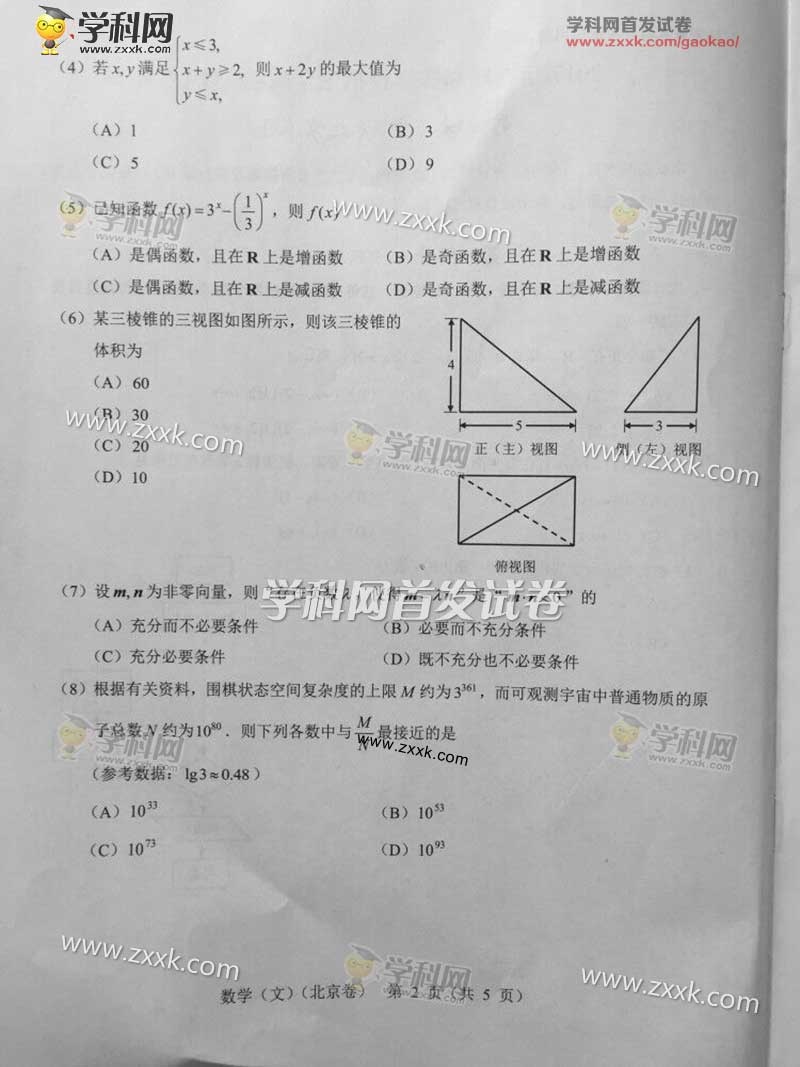 学科网
www.zxxk.com
学科网首发试卷
www.zxxk.com/gaokao/
(4)若 x, y 满足 { x≤3, x+y≥2, y≤x, 则 x+2y 的最大值为
(A)1 (B)3
(C)5 (D)9
(5)已知函数 f(x)=3^x−(1/3)^x,则 f(x)
(A)是偶函数,且在 R 上是增函数 (B)是奇函数,且在 R 上是增函数
(C)是偶函数,且在 R 上是减函数 (D)是奇函数,且在 R 上是减函数
(6)某三棱锥的三视图如图所示,则该三棱锥的
体积为
(A)60
(B)30
(C)20
(D)10
4
5
3
正(主)视图 侧(左)视图
俯视图
(7)设 m, n 为非零向量,则 是“m·n<0”的
(A)充分而不必要条件 (B)必要而不充分条件
(C)充分必要条件 (D)既不充分也不必要条件
(8)根据有关资料,围棋状态空间复杂度的上限 M 约为 3^361,而可观测宇宙中普通物质的原
子总数 N 约为 10^80.则下列各数中与 M/N 最接近的是
(参考数据:lg3≈0.48)
(A)10^33 (B)10^53
(C)10^73 (D)10^93
数学(文)(北京卷) 第 2 页(共 5 页)
学科网首发试卷
www.zxxk.com
www.zxxk.com
www.zxxk.com
www.zxxk.com
www.zxxk.com
www.zxxk.com
学科网
学科网
学科网
学科网
学科网
学科网